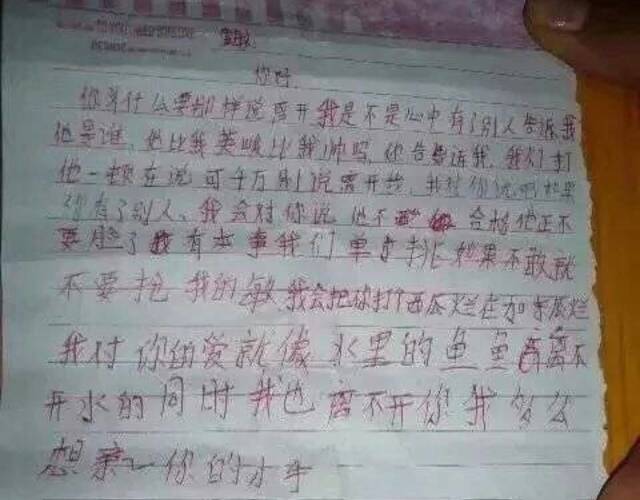 TO YOU
敏
你好
你为什么要别样说离开我是不是心中有了别人告诉我
他是谁，他比我英峻比我帅吗，你告告诉我，我们打
他一顿在说可千万别说离开我，我对你说吧如果
你有了别人，我会对你说他不合格他正不
要脸了我有本事我们单步挑如果不敢就
不要抢我的敏我会把你打个西瓜烂在加东瓜烂
我对你的爱就像水里的鱼鱼离不
开水的同时我也离不开你我多么
想亲一你的小手